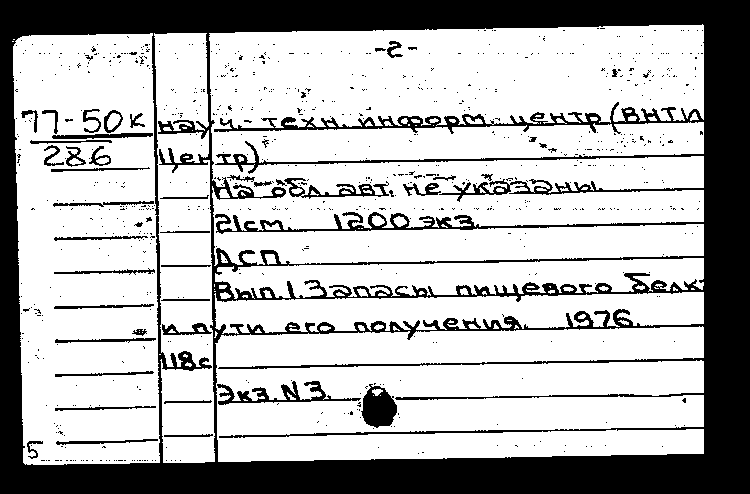 -2-
77-50к науч.-техн. информ. центр (ВНТИ
286 Центр).
На обл. авт. не указаны.
21см. 1200 экз.
ДСП.
Вып.1. Запасы пищевого белка
и пути его получения. 1976.
118с
Экз. N 3.
5